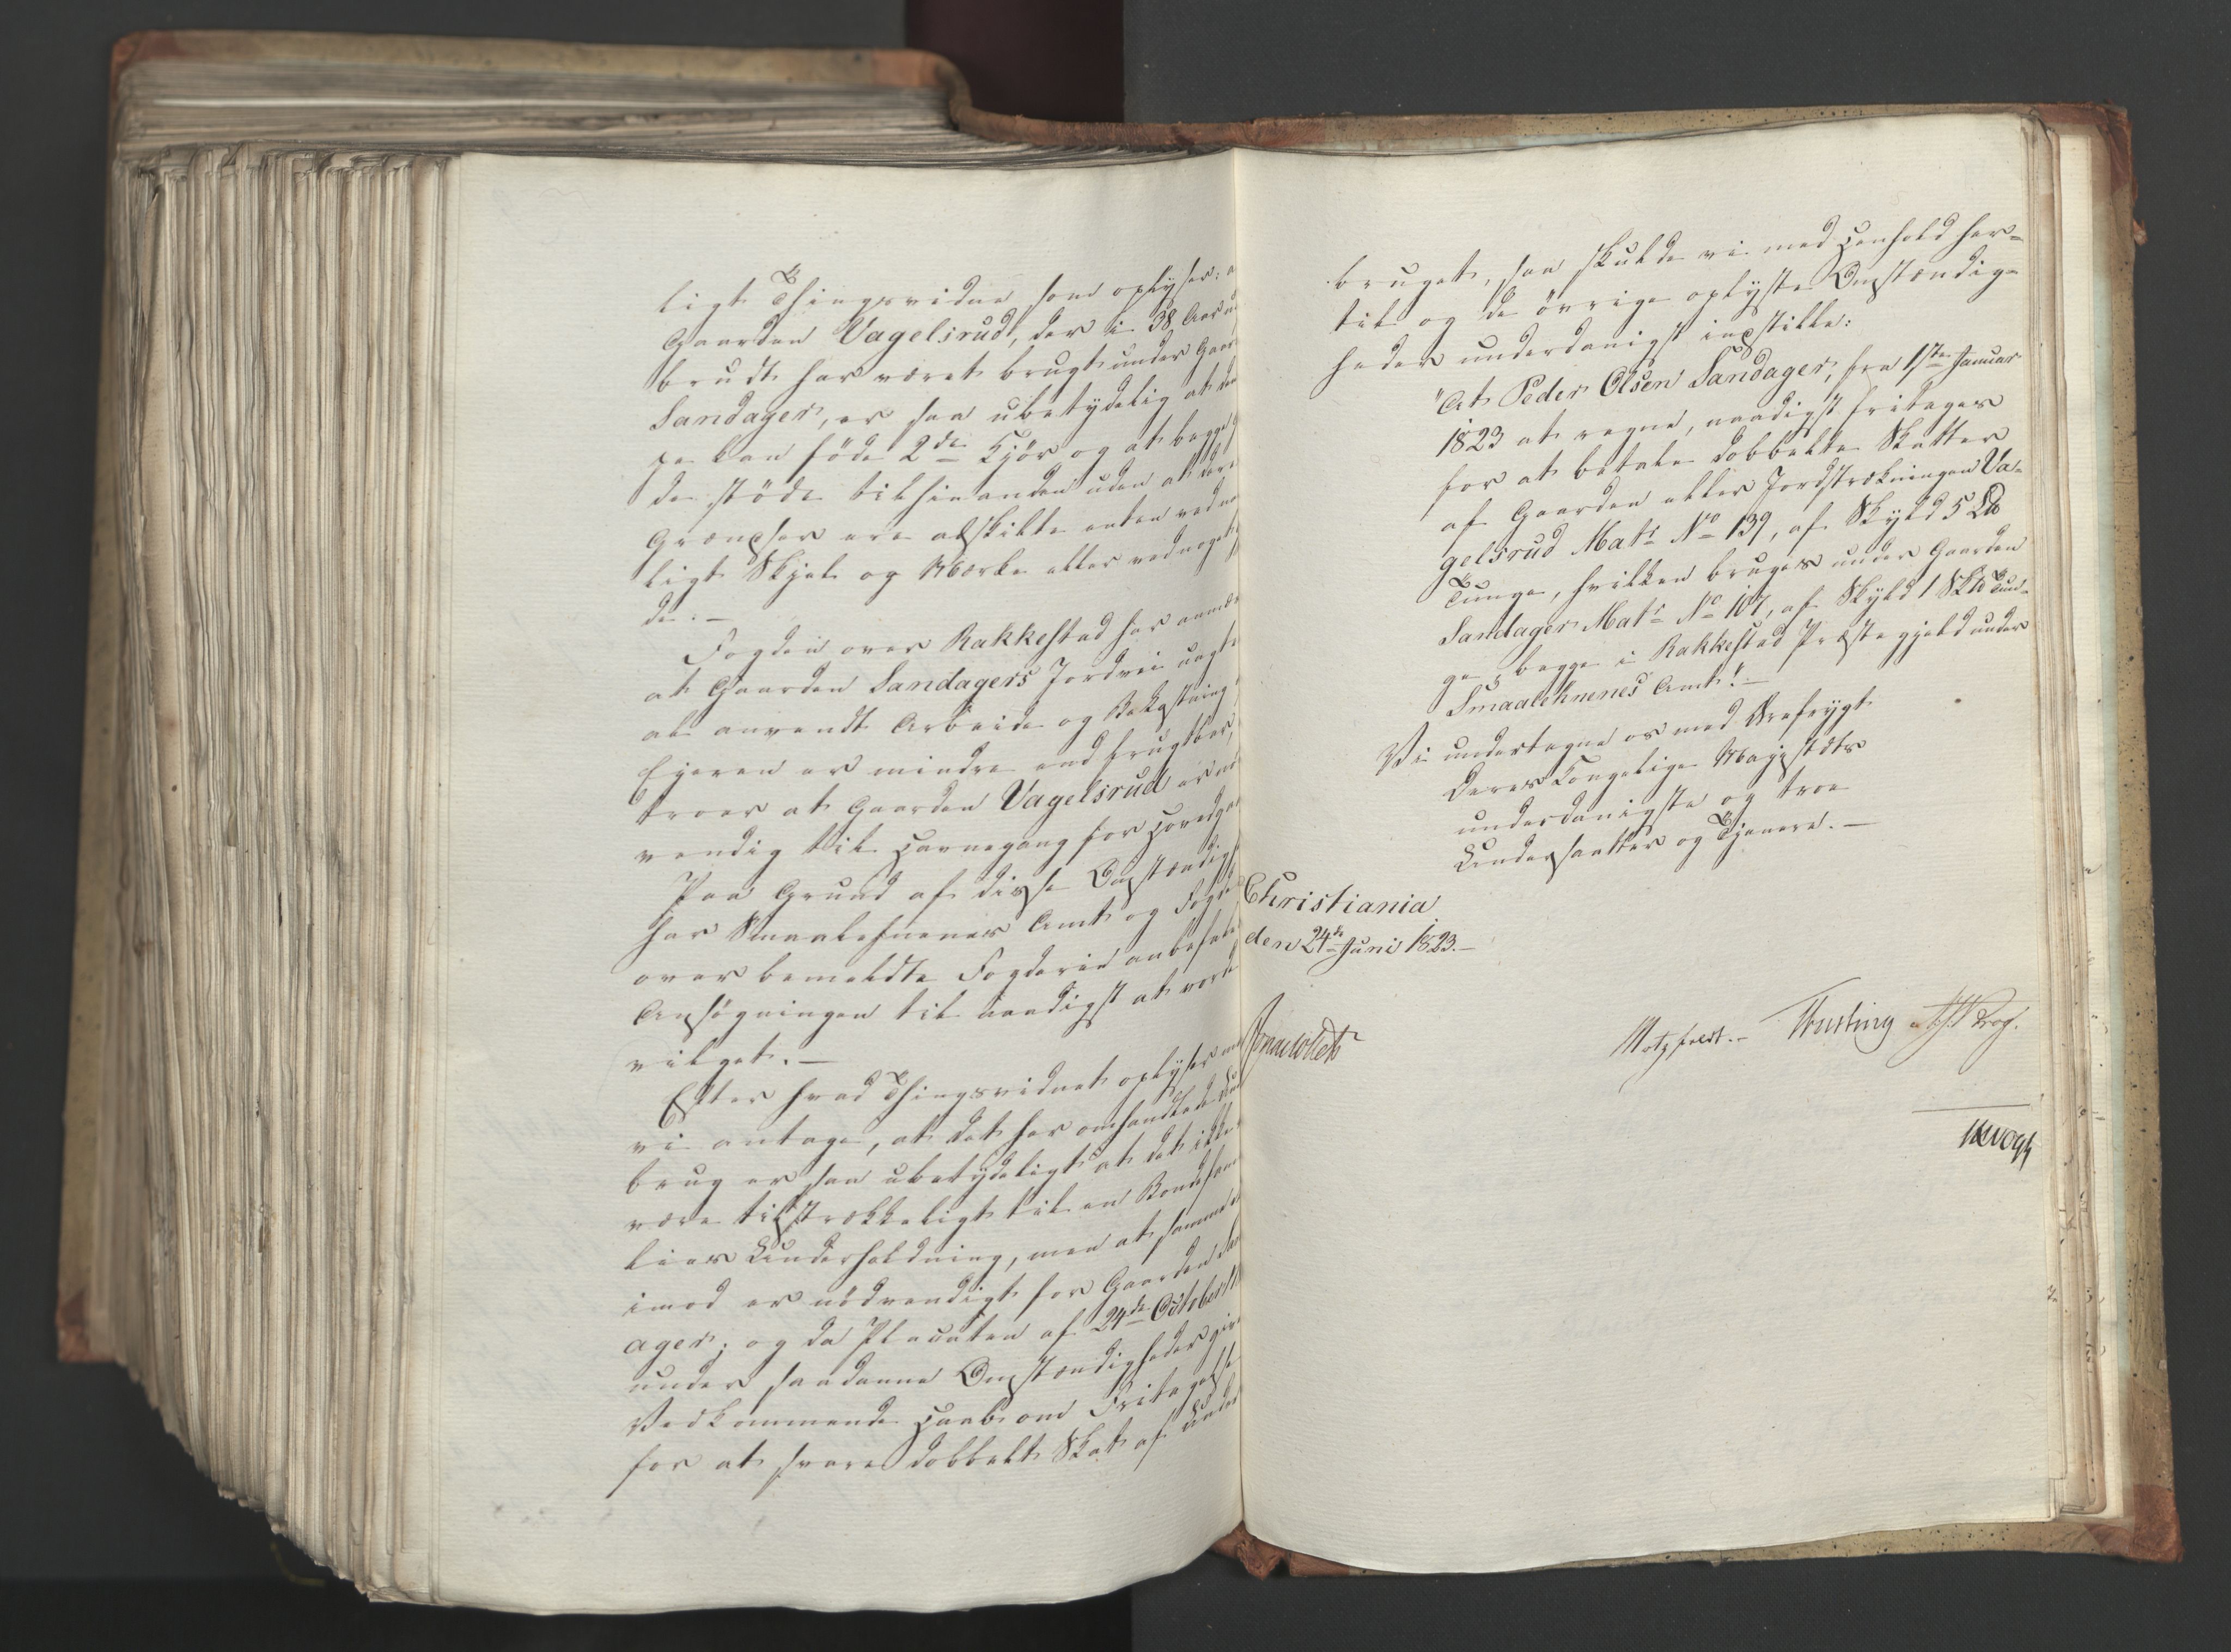 ligt Thingsvidne som oplyser: a
Gaarden Vagelsrud, der i 38 Aar u
brudt har været brugt under Gaar
Sandager, er saa ubetydelig at den
pe kan föde 2de Kjör og at begge
de støde til hinanden uden at der
Grændser ere adskilte enten ved na
ligt Skjel og Mærke eller ved noget
de. —
Fogden over Rakkestad har anmær
at Gaarden Sandagers Jordvei uagt
al anvendt Arbeide og Bekostning
Ejeren er mindre end frugtbar,
troer at Gaarden Vagelsrud er nö
vendig til Havnegang for Hovedga
Paa Grund af disse Omstændig
har Smaalehnenes Amt og Fogde
over bemeldte Fogderie anbefale
Ansøgningen til naadigst at vorde
vilget. —
Efter hvad Thingsvidnet oplyser maa
vi antage, at det her omhandlede Un
brug er saa ubetydeligt at det ikke
være tilstrækkeligt til en Bondefami
lies Underholdning, men at samme d
imod er nödvendigt for Gaarden San
ager; og da Placaten af 24de October
under saadanne Omstændigheder giv
Vedkommende Haab om Fritagelse
for at svare dobbelt Skat af Under
bruget, saa skulde vi med Henhold her-
til og de övrige oplyste Omstændig-
heder underdanigst indstille:
"At Peder Olsen Sandager, fra 1ste Januar
1823 at regne, naadigst fritages
for at betale dobbelte Skatter
af Gaarden eller Jordstrækningen Va-
gelsrud Matr No 139, af Skyld 5 L℔
Tunge, hvilken bruges under Gaarden
Sandager Matr No 107, af Skyld 1 Sk℔ Tun-
ge, begge i Rakkestad Præstegjeld under
Smaalehnenes Amt." —
Vi undertegne os med Ærefrygt
Deres Kongelige Majestæts
underdanigste og troe
Undersaatter og Tjenere. —
Christiania
den 24de Juni 1823. —
Jonas Collett
Motzfeldt. — Krog.